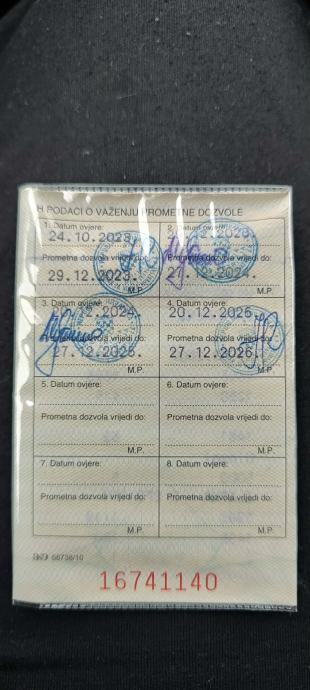 H PODACI O VAŽENJU PROMETNE DOZVOLE
1. Datum ovjere:
24.10.2023.
Prometna dozvola vrijedi do:
29.12.2023.
M.P.
2. Datum ovjere:
.12.2023.
Prometna dozvola vrijedi do:
27.12.2024.
M.P.
3. Datum ovjere:
.12.2024.
Prometna dozvola vrijedi do:
27.12.2025.
M.P.
4. Datum ovjere:
20.12.2025.
Prometna dozvola vrijedi do:
27.12.2026.
M.P.
5. Datum ovjere:
Prometna dozvola vrijedi do:
M.P.
6. Datum ovjere:
Prometna dozvola vrijedi do:
M.P.
7. Datum ovjere:
Prometna dozvola vrijedi do:
M.P.
8. Datum ovjere:
Prometna dozvola vrijedi do:
M.P.
16741140